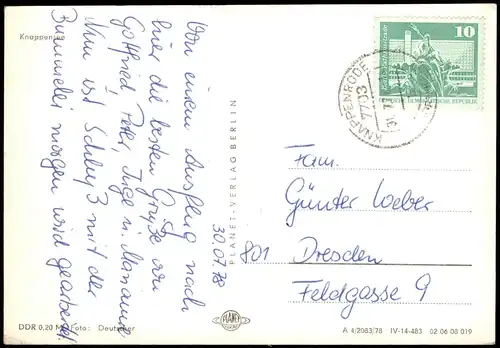 Knappensee
30.07.78
Von einem Ausflug nach
hier die besten Grüße von
Gottfried, Peter, Inge u. Marianne.
Nun ist Schluß mit der
Bummelei morgen wird gearbeitet.
DDR 0,20 M Foto: Deutscher
PLANET-VERLAG BERLIN
PLANET
10
DEUTSCHE DEMOKRATISCHE REPUBLIK
KNAPPENRODE
7703
Fam.
Günter Weber
801 Dresden
Feldgasse 9
A 4/2063/78 IV-14-483 02 06 08 019